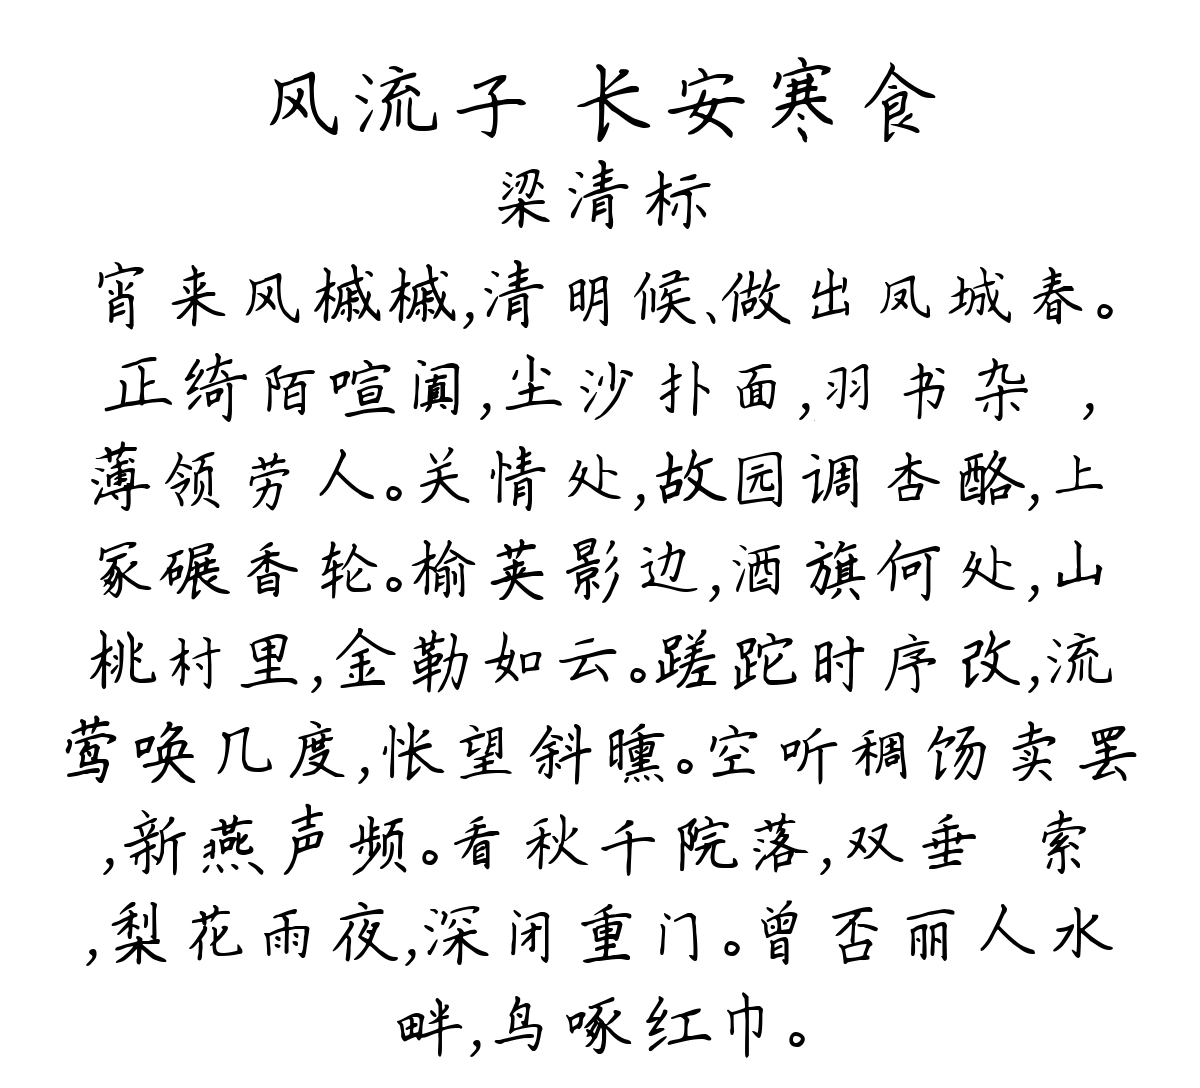 风流子 长安寒食
梁清标
宵来风槭槭,清明候、做出凤城春。
正绮陌喧阗,尘沙扑面,羽书杂 ,
薄领劳人。关情处,故园调杏酪,上
冢碾香轮。榆荚影边,酒旗何处,山
桃村里,金勒如云。蹉跎时序改,流
莺唤几度,怅望斜曛。空听稠饧卖罢
,新燕声频。看秋千院落,双垂 索
,梨花雨夜,深闭重门。曾否丽人水
畔,鸟啄红巾。